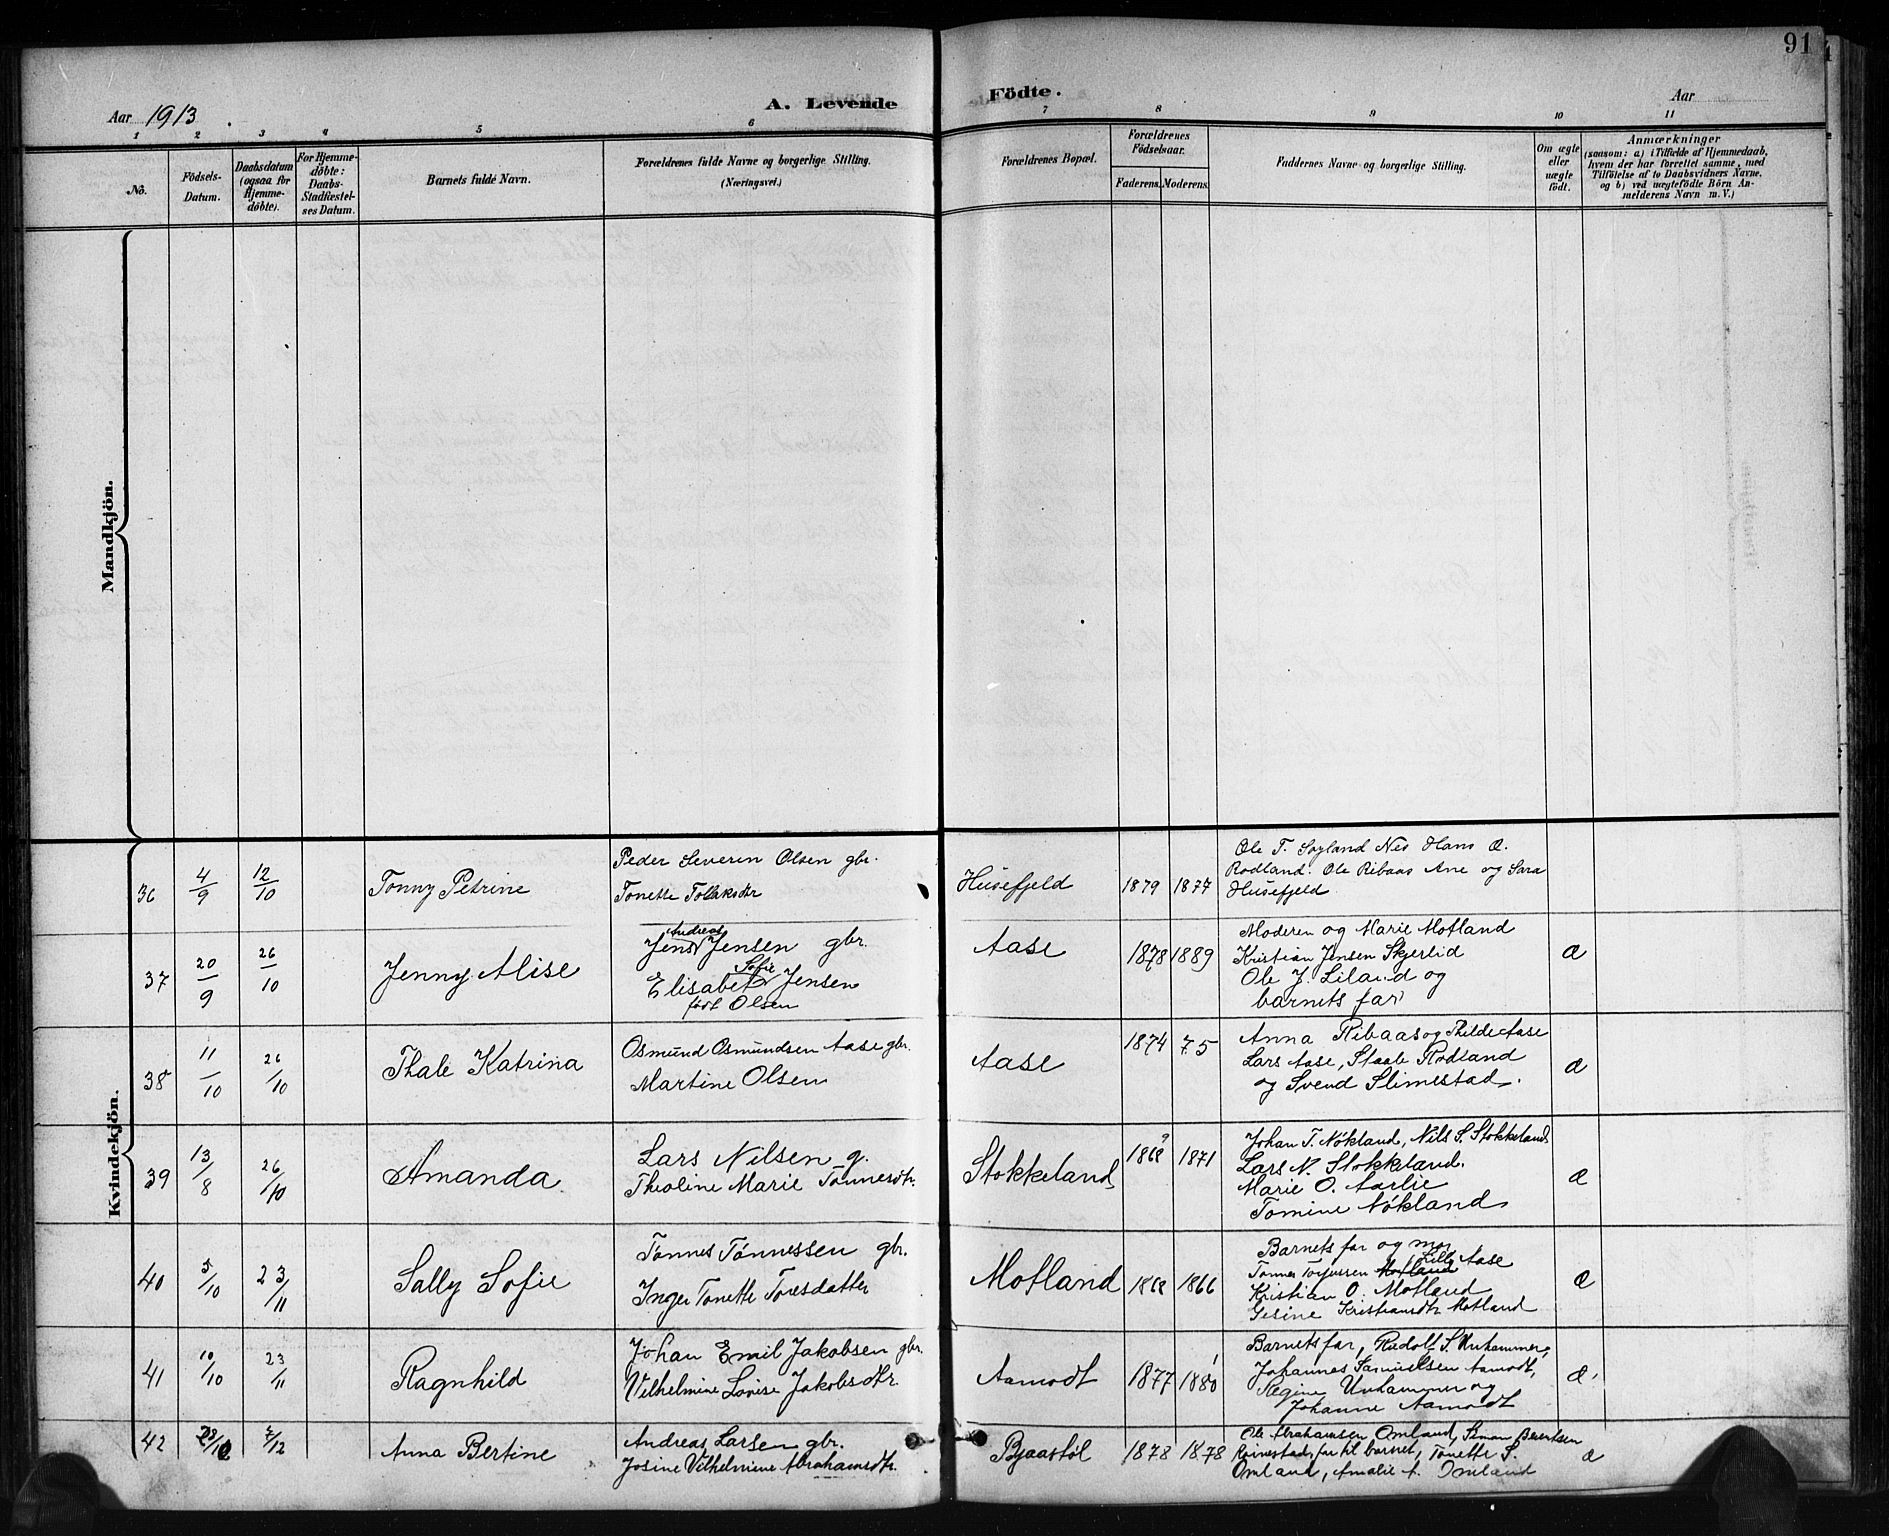 91
Aar 1913.
A. Levende
Födte.
Aar
1
2
3
4
5
6
7
8
9
10
11
No.
Födsels-
Datum.
Daabsdatum
(ogsaa for
Hjemme-
döbte).
For Hjemme-
döbte:
Daabs-
Stadfæstel-
ses Datum.
Barnets fulde Navn.
Forældrenes fulde Navne og borgerlige Stilling.
(Næringsvei.)
Forældrenes Bopæl.
Forældrenes
Födselsaar.
Faderens.
Moderens.
Faddernes Navne og borgerlige Stilling.
Om ægte
eller
uægte
födt.
Anmærkninger
(saasom: a) i Tilfælde af Hjemmedaab,
hvem der har forrettet samme, med
Tilföielse af to Daabsvidners Navne,
og b) ved uægtefödte Börn An-
melderens Navn m. V.)
Mandkjön.
Kvindekjön.
36
4/9
12/10
Tonny Petrine
Peder Severin Olsen gbr.
Tonette Tollaksdtr
Husefjeld
1879
1877
Ole T. Sogland Nes Hans O.
Rodland. Ole Ribaas Ane og Sara
Husefjeld
37
20/9
26/10
Jenny Alise
Andreas
Jens Jensen gbr.
Sofie
Elisabet Jensen
født Olsen
Aase
1878
1889
Moderen og Marie Motland
Kristian Jensen Skjerlid
Ole J. Liland og
barnets far
æ
38
11/10
26/10
Thale Katrina
Osmund Osmundsen Aase gbr.
Martine Olsen
Aase
1874
75
Anna Ribaas og Thilde Aase
Lars Aase, Staale Rodland
og Svend Slimestad.
æ
39
13/8
26/10
Amanda
Lars Nilsen g.
Theoline Marie Tønnesdtr.
Stokkeland
9
1868
1871
Johan T. Nøkland, Nils S. Stokkeland
Lars N. Stokkeland.
Marie O. Aarlie
Tomine Nøkland
æ
40
5/10
23/11
Sally Sofie
Tønnes Tønnessen gbr.
Inger Tonette Toresdatter
Motland
1868
1866
Barnets far og mor
Lilly Aase
Tønnes Torjussen Motland
Kristian O. Motland
Gesine Kristiansdtr Motland
æ
41
10/10
23/11
Ragnhild
Johan Emil Jakobsen gbr.
Vilhelmine Lovise Jakobsdtr.
Aamodt
1877
1880
Barnets far, Rudolf S. Unhammer,
Johannes Samuelsen Aamodt,
Regine Unhammer og
Johanne Aamodt
æ
42
7/12
Anna Bertine
Andreas Larsen gbr.
Josine Vilhelmine Abrahamsdtr.
Bjaastøl
1878
1878
Ole Abrahamsen Omland, Simon Berentsen
Reinestad, far til barnet, Tonette S.
Omland, Amalie A. Omland
æ